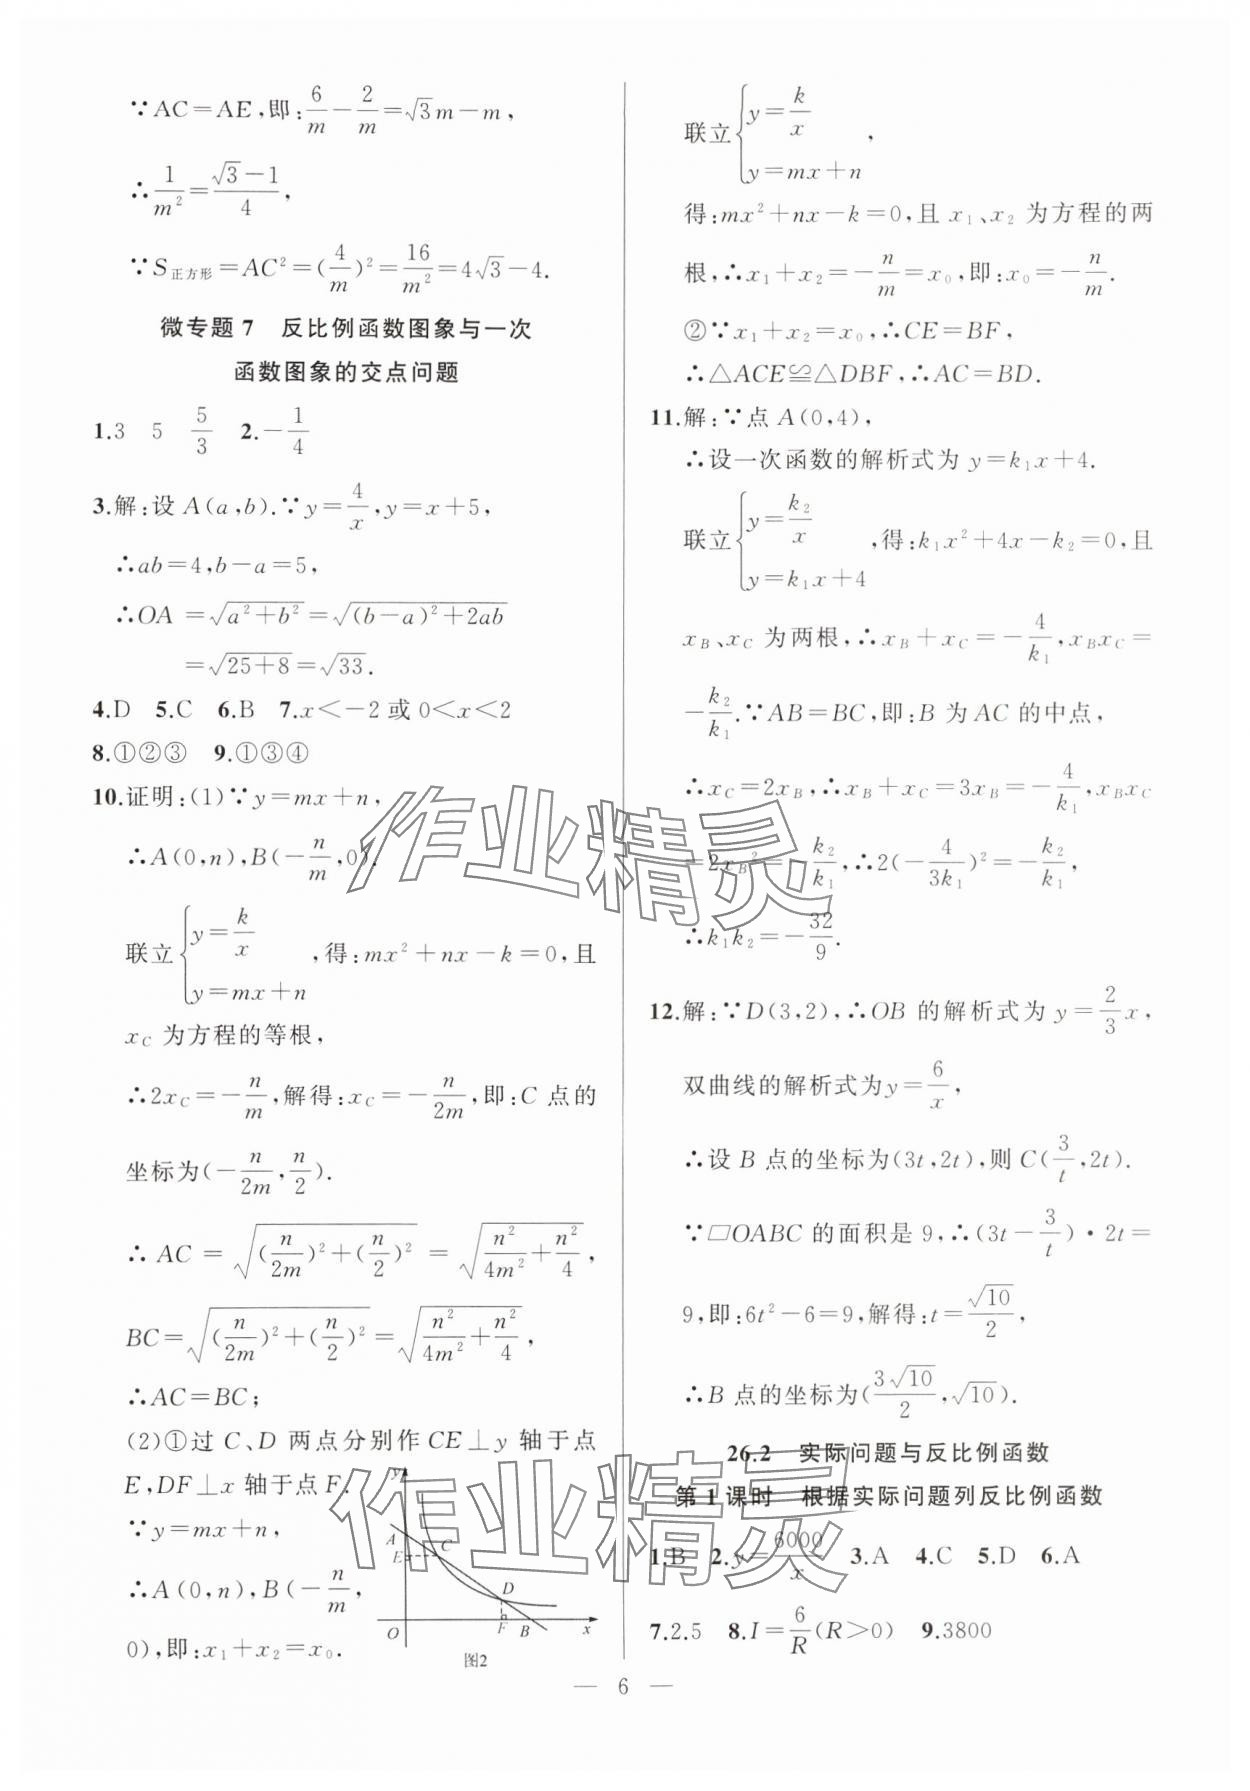 ∵AC=AE,即:6/m−2/m=√3m−m,
∴1/m²=(√3−1)/4,
∵S正方形=AC²=(4/m)²=16/m²=4√3−4.
微专题7 反比例函数图象与一次
函数图象的交点问题
1.3 5 5/3 2.−1/4
3.解:设A(a,b).∵y=4/x,y=x+5,
∴ab=4,b−a=5,
∴OA=√(a²+b²)=√((b−a)²+2ab)
=√(25+8)=√33.
4.D 5.C 6.B 7.x<−2或0<x<2
8.①②③ 9.①③④
10.证明:(1)∵y=mx+n,
∴A(0,n),B(−n/m,0).
联立{y=k/x
y=mx+n,得:mx²+nx−k=0,且
x_C为方程的等根,
∴2x_C=−n/m,解得:x_C=−n/2m,即:C点的
坐标为(−n/2m,n/2).
∴AC=√((n/2m)²+(n/2)²)=√(n²/4m²+n²/4),
BC=√((n/2m)²+(n/2)²)=√(n²/4m²+n²/4),
∴AC=BC;
(2)①过C、D两点分别作CE⊥y轴于点
E,DF⊥x轴于点F.
∵y=mx+n,
∴A(0,n),B(−n/m,
0),即:x₁+x₂=x₀.
y
A
E
C
D
O
F
B
x
图2
联立{y=k/x
y=mx+n,
得:mx²+nx−k=0,且x₁、x₂为方程的两
根,∴x₁+x₂=−n/m=x₀,即:x₀=−n/m.
②∵x₁+x₂=x₀,∴CE=BF,
∴△ACE≌△DBF,∴AC=BD.
11.解:∵点A(0,4),
∴设一次函数的解析式为y=k₁x+4.
联立{y=k₂/x
y=k₁x+4,得:k₁x²+4x−k₂=0,且
x_B、x_C为两根,∴x_B+x_C=−4/k₁,x_Bx_C=
−k₂/k₁.∵AB=BC,即:B为AC的中点,
∴x_C=2x_B,∴x_B+x_C=3x_B=−4/k₁,x_Bx_C
=2x_B²=−k₂/k₁,∴2(−4/3k₁)²=−k₂/k₁,
∴k₁k₂=−32/9.
12.解:∵D(3,2),∴OB的解析式为y=2/3x,
双曲线的解析式为y=6/x,
∴设B点的坐标为(3t,2t),则C(3/t,2t).
∵▱OABC的面积是9,∴(3t−3/t)·2t=
9,即:6t²−6=9,解得:t=√10/2,
∴B点的坐标为(3√10/2,√10).
26.2 实际问题与反比例函数
第1课时 根据实际问题列反比例函数
1.B 2.y=6000/x 3.A 4.C 5.D 6.A
7.2.5 8.I=6/R(R>0) 9.3800
— 6 —
作业精灵
作业精灵